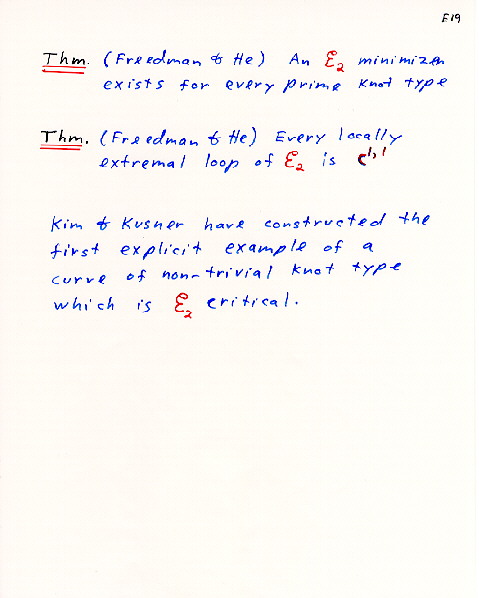 E19
Thm. (Freedman & He) An ℰ₂ minimizer
exists for every prime knot type
Thm. (Freedman & He) Every locally
extremal loop of ℰ₂ is C¹,¹
Kim & Kusner have constructed the
first explicit example of a
curve of non-trivial knot type
which is ℰ₂ critical.